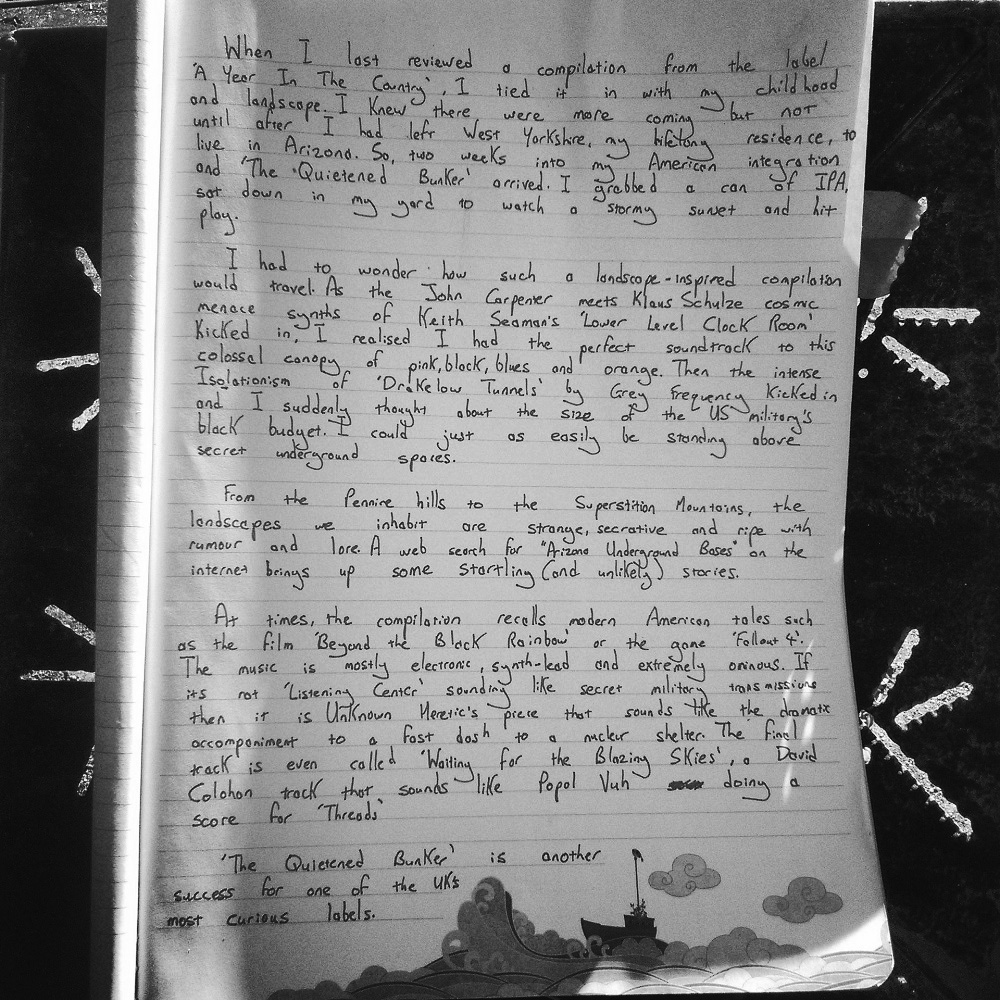 When I last reviewed a compilation from the label
'A Year In The Country', I tied it in with my childhood
and landscape. I knew there were more coming but not
until after I had left West Yorkshire, my lifelong residence, to
live in Arizona. So, two weeks into my American integration
and 'The Quietened Bunker' arrived. I grabbed a can of IPA,
sat down in my yard to watch a stormy sunset and hit
play.
I had to wonder how such a landscape-inspired compilation
would travel. As the John Carpenter meets Klaus Schulze cosmic
menace synths of Keith Seaman's 'Lower Level Clock Room'
Kicked in, I realised I had the perfect soundtrack to this
colossal canopy of pink, black, blues and orange. Then the intense
Isolationism of 'Drakelow Tunnels' by Grey Frequency Kicked in
and I suddenly thought about the size of the US military's
black budget. I could just as easily be standing above
secret underground spaces.
From the Pennine hills to the Superstition Mountains, the
landscapes we inhabit are strange, secrative and ripe with
rumour and lore. A web search for "Arizona Underground Bases" on the
internet brings up some startling (and unlikely) stories.
At times, the compilation recalls modern American tales such
as the film 'Beyond the Black Rainbow' or the game 'Fallout 4'.
The music is mostly electronic, synth-lead and extremely ominous. If
its not 'Listening Center' sounding like secret military transmissions
then it is Unknown Heretic's piece that sounds like the dramatic
accompaniment to a fast dash to a nuclear shelter. The final
track is even called 'Waiting for the Blazing Skies', a David
Colohan track that sounds like Popol Vuh doing a
score for 'Threads'
'The Quietened Bunker' is another
success for one of the UK's
most curious labels.